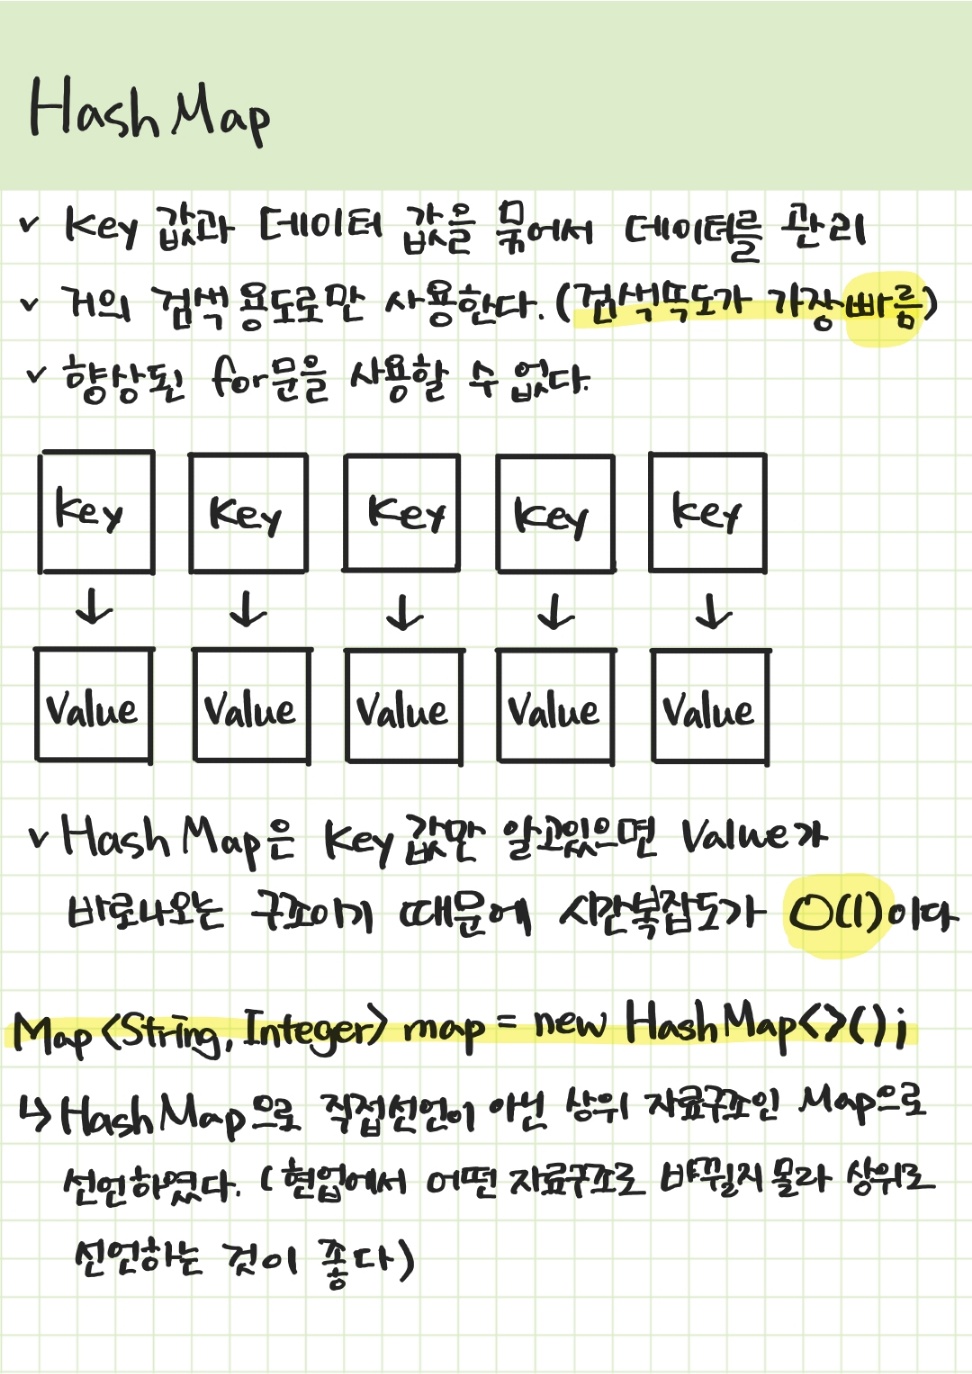 HashMap
✓ Key 값과 데이터 값을 묶어서 데이터를 관리
✓ 거의 검색 용도로만 사용한다. (검색속도가 가장 빠름)
✓ 향상된 for문을 사용할 수 없다.
Key Key Key Key Key
↓ ↓ ↓ ↓ ↓
Value Value Value Value Value
✓ HashMap은 Key 값만 알고있으면 Value가
바로나오는 구조이기 때문에 시간복잡도가 O(1)이다
Map <String, Integer> map = new HashMap<>();
↳ HashMap으로 직접선언이 아닌 상위 자료구조인 Map으로
선언하였다. (현업에서 어떤 자료구조로 바뀔지 몰라 상위로
선언하는 것이 좋다)